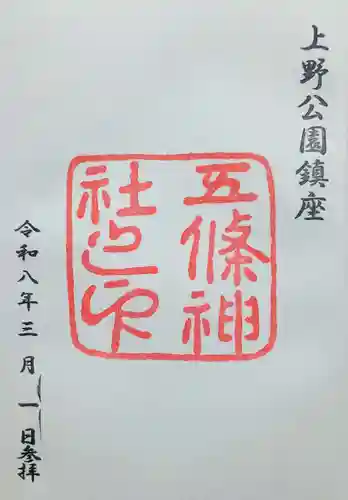 上野公園鎮座
五條神
社之印
令和八年三月一日参拝